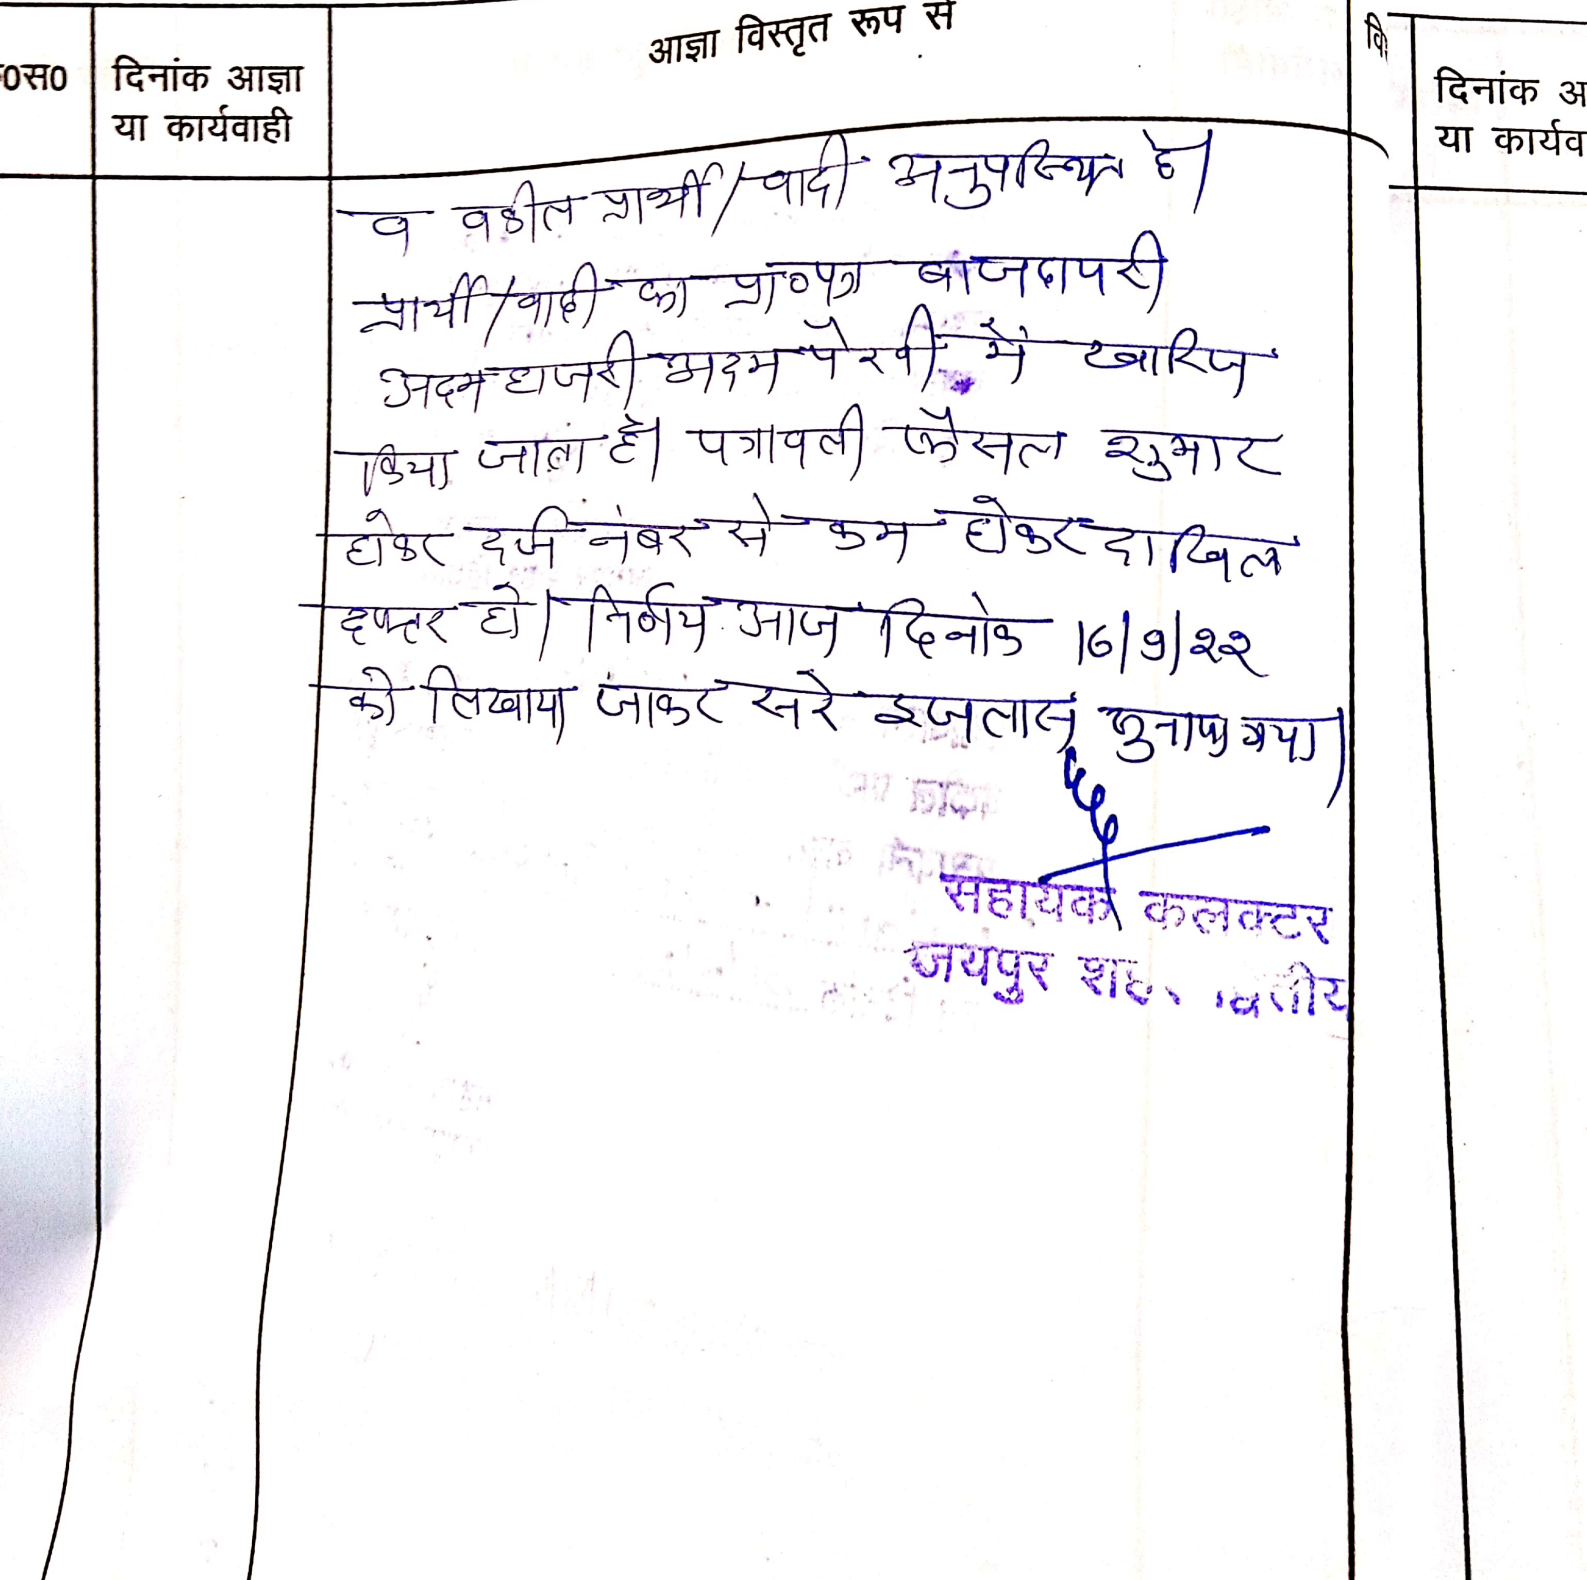 आज्ञा विस्तृत रूप से
वि
0स0
दिनांक आज्ञा
या कार्यवाही
दिनांक अ
या कार्यव
व वकील प्रार्थी/वादी अनुपस्थित है।
प्रार्थी/वादी का प्रा०पत्र बाजदायरी
अदम हाजरी अदम पैरवी में खारिज
किया जाता है। पत्रावली फैसल शुमार
होकर दर्ज नंबर से कम होकर दाखिल
दफ्तर हो। निर्णय आज दिनांक 16/9/22
को लिखाया जाकर सरे इजलास सुनाया गया।
सहायक कलक्टर
जयपुर शहर